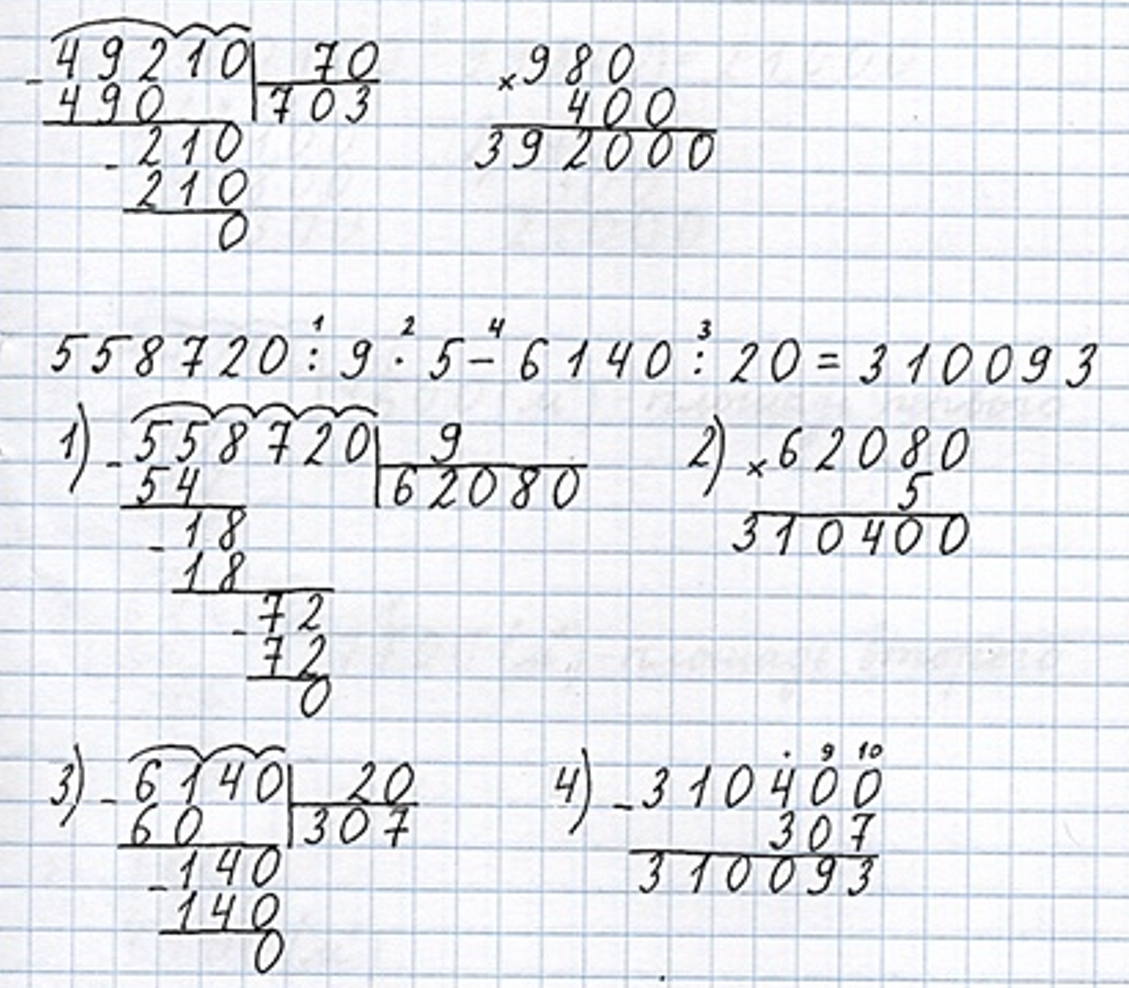 49210 | 70
- 490 | 703
- 210
210
0
× 980
400
392000
1 2 4 3
558720 : 9 · 5 – 6140 : 20 = 310093
1) - 558720 | 9
54 | 62080
- 18
18
- 72
72
0
2) × 62080
5
310400
3) - 6140 | 20
60 | 307
- 140
140
0
· 9 10
4) - 310400
307
310093